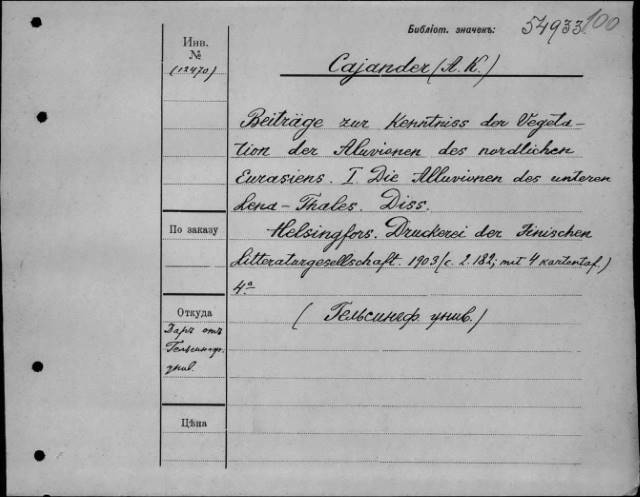 Библіот. значекъ: 54933 100
Инв.
№
(12470)
Cajander (A. K.)
Beiträge zur Kenntniss der Vegeta-
tion der Aluvionen des nordlichen
Eurasiens. I. Die Alluvionen des unteren
Lena-Thales. Diss.
По заказу
Helsingfors. Druckerei der Finischen
Litteraturgesellschaft. 1903 (c. 2. 182; mit 4 kartentaf.)
4.º
Откуда
(Гельсингф. унив.)
Даръ отъ
Гельсингф.
унив.
Цѣна